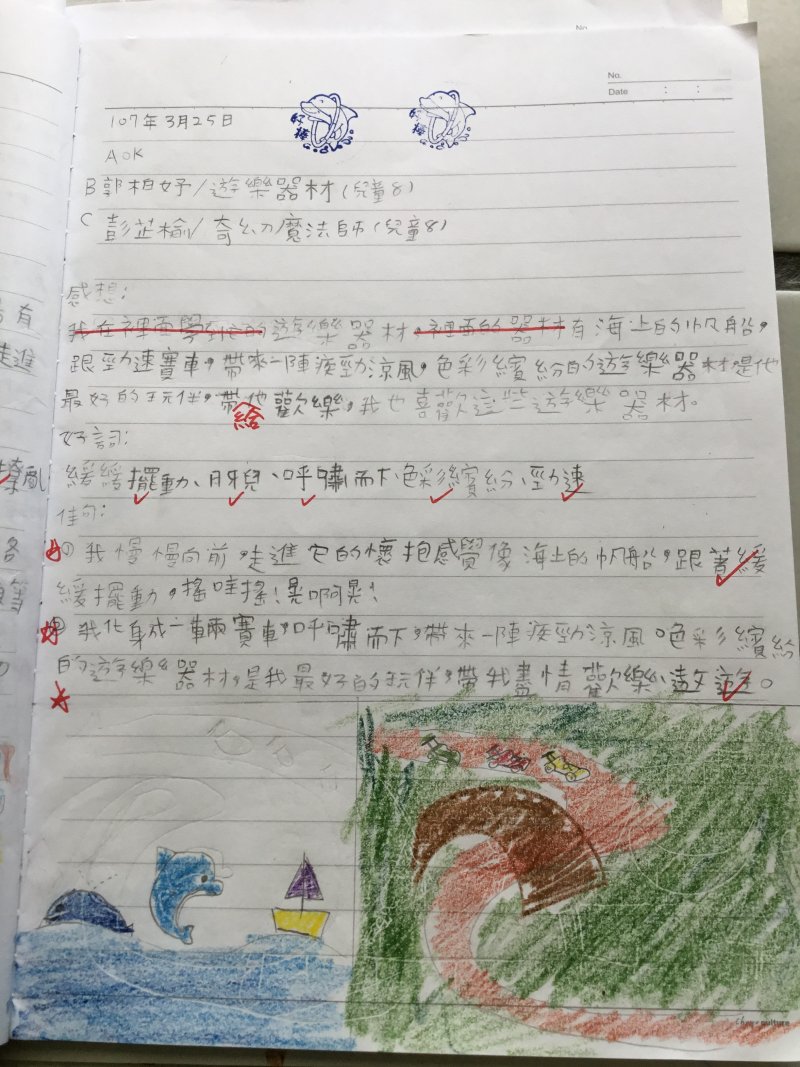 No.
Date : :
107年3月25日
好棒 好棒
A OK
B郭柏妤/遊樂器材(兒童8)
C 彭芷榆/奇幻魔法師(兒童8)
感想:
我在裡面學到他的遊樂器材,裡面的器材有海上的帆船,
跟勁速賽車,帶來一陣疾勁涼風,色彩繽紛的遊樂器材是他
最好的玩伴,帶他歡樂,我也喜歡這些遊樂器材。
給
好詞:
緩緩擺動、呀兒、呼嘯而下、色彩繽紛、勁速
佳句:
① 我慢慢向前,走進它的懷抱感覺像海上的帆船,跟著緩
緩擺動,搖哇搖!晃啊晃!
② 我化身成一輛賽車,呼嘯而下,帶來一陣疾勁涼風。色彩繽紛
的遊樂器材,是我最好的玩伴,帶我盡情歡樂、遨遊。